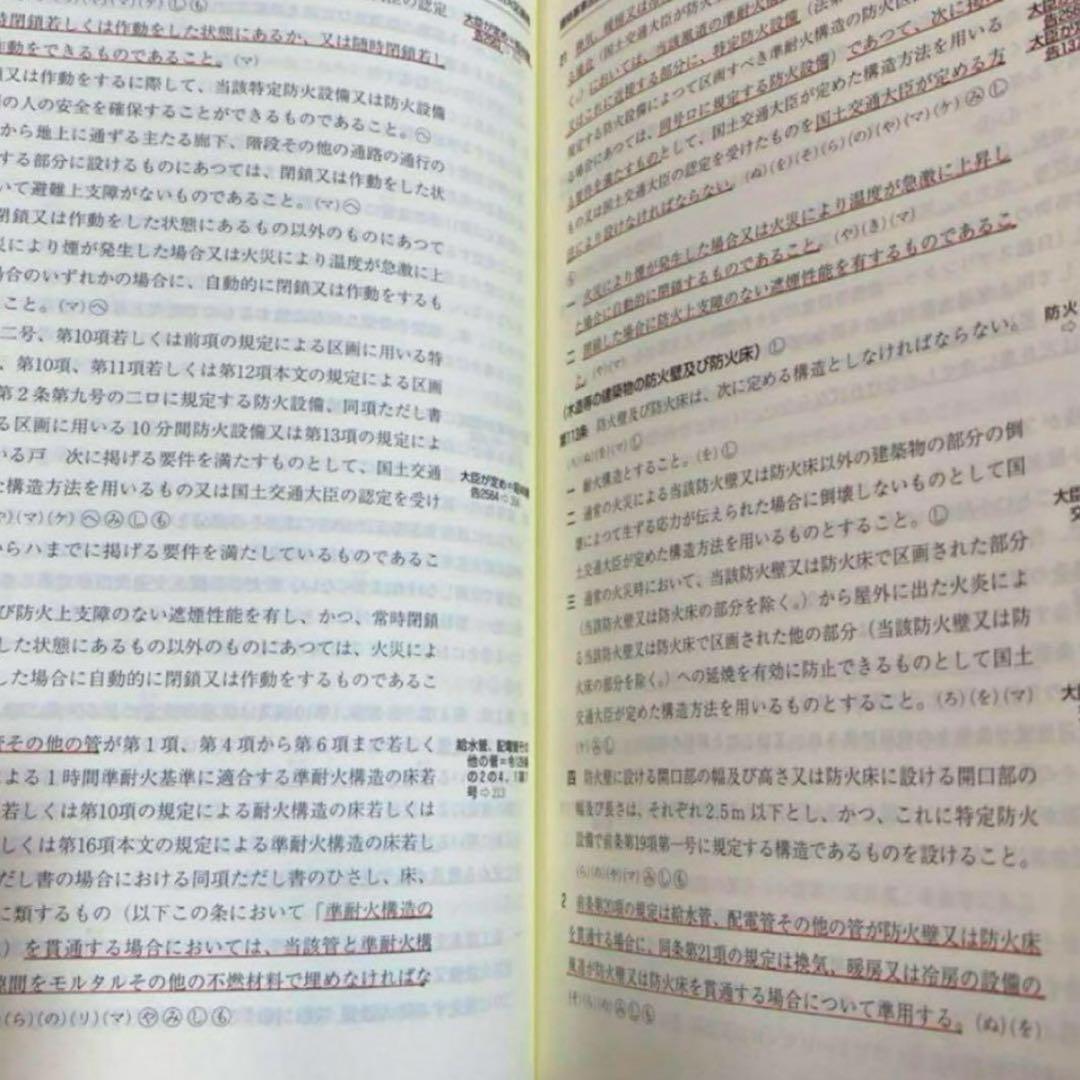 若しくは作動をした状態にあるか、又は随時閉鎖若し
作動をできるものであること。(マ)
又は作動をするに際して、当該特定防火設備又は防火設備
の人の安全を確保することができるものであること。㋬
から地上に通ずる主たる廊下、階段その他の通路の通行の
する部分に設けるものにあつては、閉鎖又は作動をした状
いて避難上支障がないものであること。(マ)㋬
閉鎖又は作動をした状態にあるもの以外のものにあつて
災により煙が発生した場合又は火災により温度が急激に上
場合のいずれかの場合に、自動的に閉鎖又は作動をするも
こと。(マ)㋬
二号、第10項若しくは前項の規定による区画に用いる特
、第10項、第11項若しくは第12項本文の規定による区画
第2条第九号の二ロに規定する防火設備、同項ただし書
る区画に用いる10分間防火設備又は第13項の規定によ
いる戸 次に掲げる要件を満たすものとして、国土交通
た構造方法を用いるもの又は国土交通大臣の認定を受け
(マ)(ケ)
からハまでに掲げる要件を満たしているものであるこ
び防火上支障のない遮煙性能を有し、かつ、常時閉鎖
した状態にあるもの以外のものにあつては、火災によ
した場合に自動的に閉鎖又は作動をするものであるこ
その他の管が第1項、第4項から第6項まで若しく
による1時間準耐火基準に適合する準耐火構造の床若
若しくは第10項の規定による耐火構造の床若しくは
しくは第16項本文の規定による準耐火構造の床若し
だし書の場合における同項ただし書のひさし、床、
に類するもの(以下この条において「準耐火構造の
)を貫通する場合においては、当該管と準耐火構
隙間をモルタルその他の不燃材料で埋めなければな
(ら)(の)(リ)(マ)
大臣が定め
告2564⇨
給水管、配電管その
他の管=令129条
の2の4、1項
号⇨213
おいては、当該風道の準耐火構造の防火区
又はこれに近接する部分に、特定防火設備(法第
規定する防火設備によつて区画すべき準耐火構造の防火区
る場合にあつては、同号ロに規定する防火設備)であつて、次に掲げ
る要件を満たすものとして、国土交通大臣が定めた構造方法を用いる
もの又は国土交通大臣の認定を受けたものを国土交通大臣が定める方
法により設けなければならない。(ぬ)(を)(そ)(ら)(の)(や)(マ)(ケ)
一 火災により煙が発生した場合又は火災により温度が急激に上昇し
た場合に自動的に閉鎖するものであること。(や)(き)(マ)
二 閉鎖した場合に防火上支障のない遮煙性能を有するものであるこ
と。(や)(マ)
(木造等の建築物の防火壁及び防火床)
第113条 防火壁及び防火床は、次に定める構造としなければならない。
一 耐火構造とすること。(を)
二 通常の火災による当該防火壁又は防火床以外の建築物の部分の倒
壊によつて生ずる応力が伝えられた場合に倒壊しないものとして国
土交通大臣が定めた構造方法を用いるものとすること。
三 通常の火災時において、当該防火壁又は防火床で区画された部分
(当該防火壁又は防火床の部分を除く。)から屋外に出た火炎によ
る当該防火壁又は防火床で区画された他の部分(当該防火壁又は防
火床の部分を除く。)への延焼を有効に防止できるものとして国土
交通大臣が定めた構造方法を用いるものとすること。(ろ)(を)(マ)
四 防火壁に設ける開口部の幅及び高さ又は防火床に設ける開口部の
幅及び長さは、それぞれ2.5m以下とし、かつ、これに特定防火
設備で前条第19項第一号に規定する構造であるものを設けること。
2 前条第20項の規定は給水管、配電管その他の管が防火壁又は防火床
を貫通する場合に、同条第21項の規定は換気、暖房又は冷房の設備の
風道が防火壁又は防火床を貫通する場合について準用する。(ぬ)(を)
防火
大臣